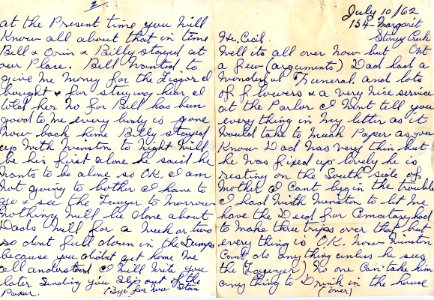 July 10/62
154 Margaret
Stoney Creek
Ont
Hi Cecil
Well its all over now but
a few (arguments) Dad had a
wonderful Funeral and lots
of flowers & a very nice service
at the Parlor I Wont tell you
everything in My letter as it
would take to Much Paper as you
Know Dad was Very thin but
he was fixed up lovely he is
resting on the South side of
Mother I Cant begin the trouble
I had With Winston to let Me
have the Deed for Cematary had
to make three trips over that but
everything is O.K. Now Winston
Cant do any thing unless he sees
the (Lawyer) No one Can take him
any thing to Drink in the house
(over)
2
at the Present time you Will
Know all about that in time
Bill & Orin & Billy stayed at
our Place. Bill Wanted to
give Me Money for the
bought & for staying here I
told her No for Bill has been
good to Me every body is gone
Now back home Billy stayed
up With Winston to Night Will
be his first alone he said he
Wants to be alone so OK. I am
Not going to bother I have to
go & see the Lawyer to Morrow
Nothing Will be done about
Dads Will for a Week or two
so dont feel down in the Dumps
because you didnt get home We
all understand I Will Write you
later Sending you out of the
Paper. (Bye for now